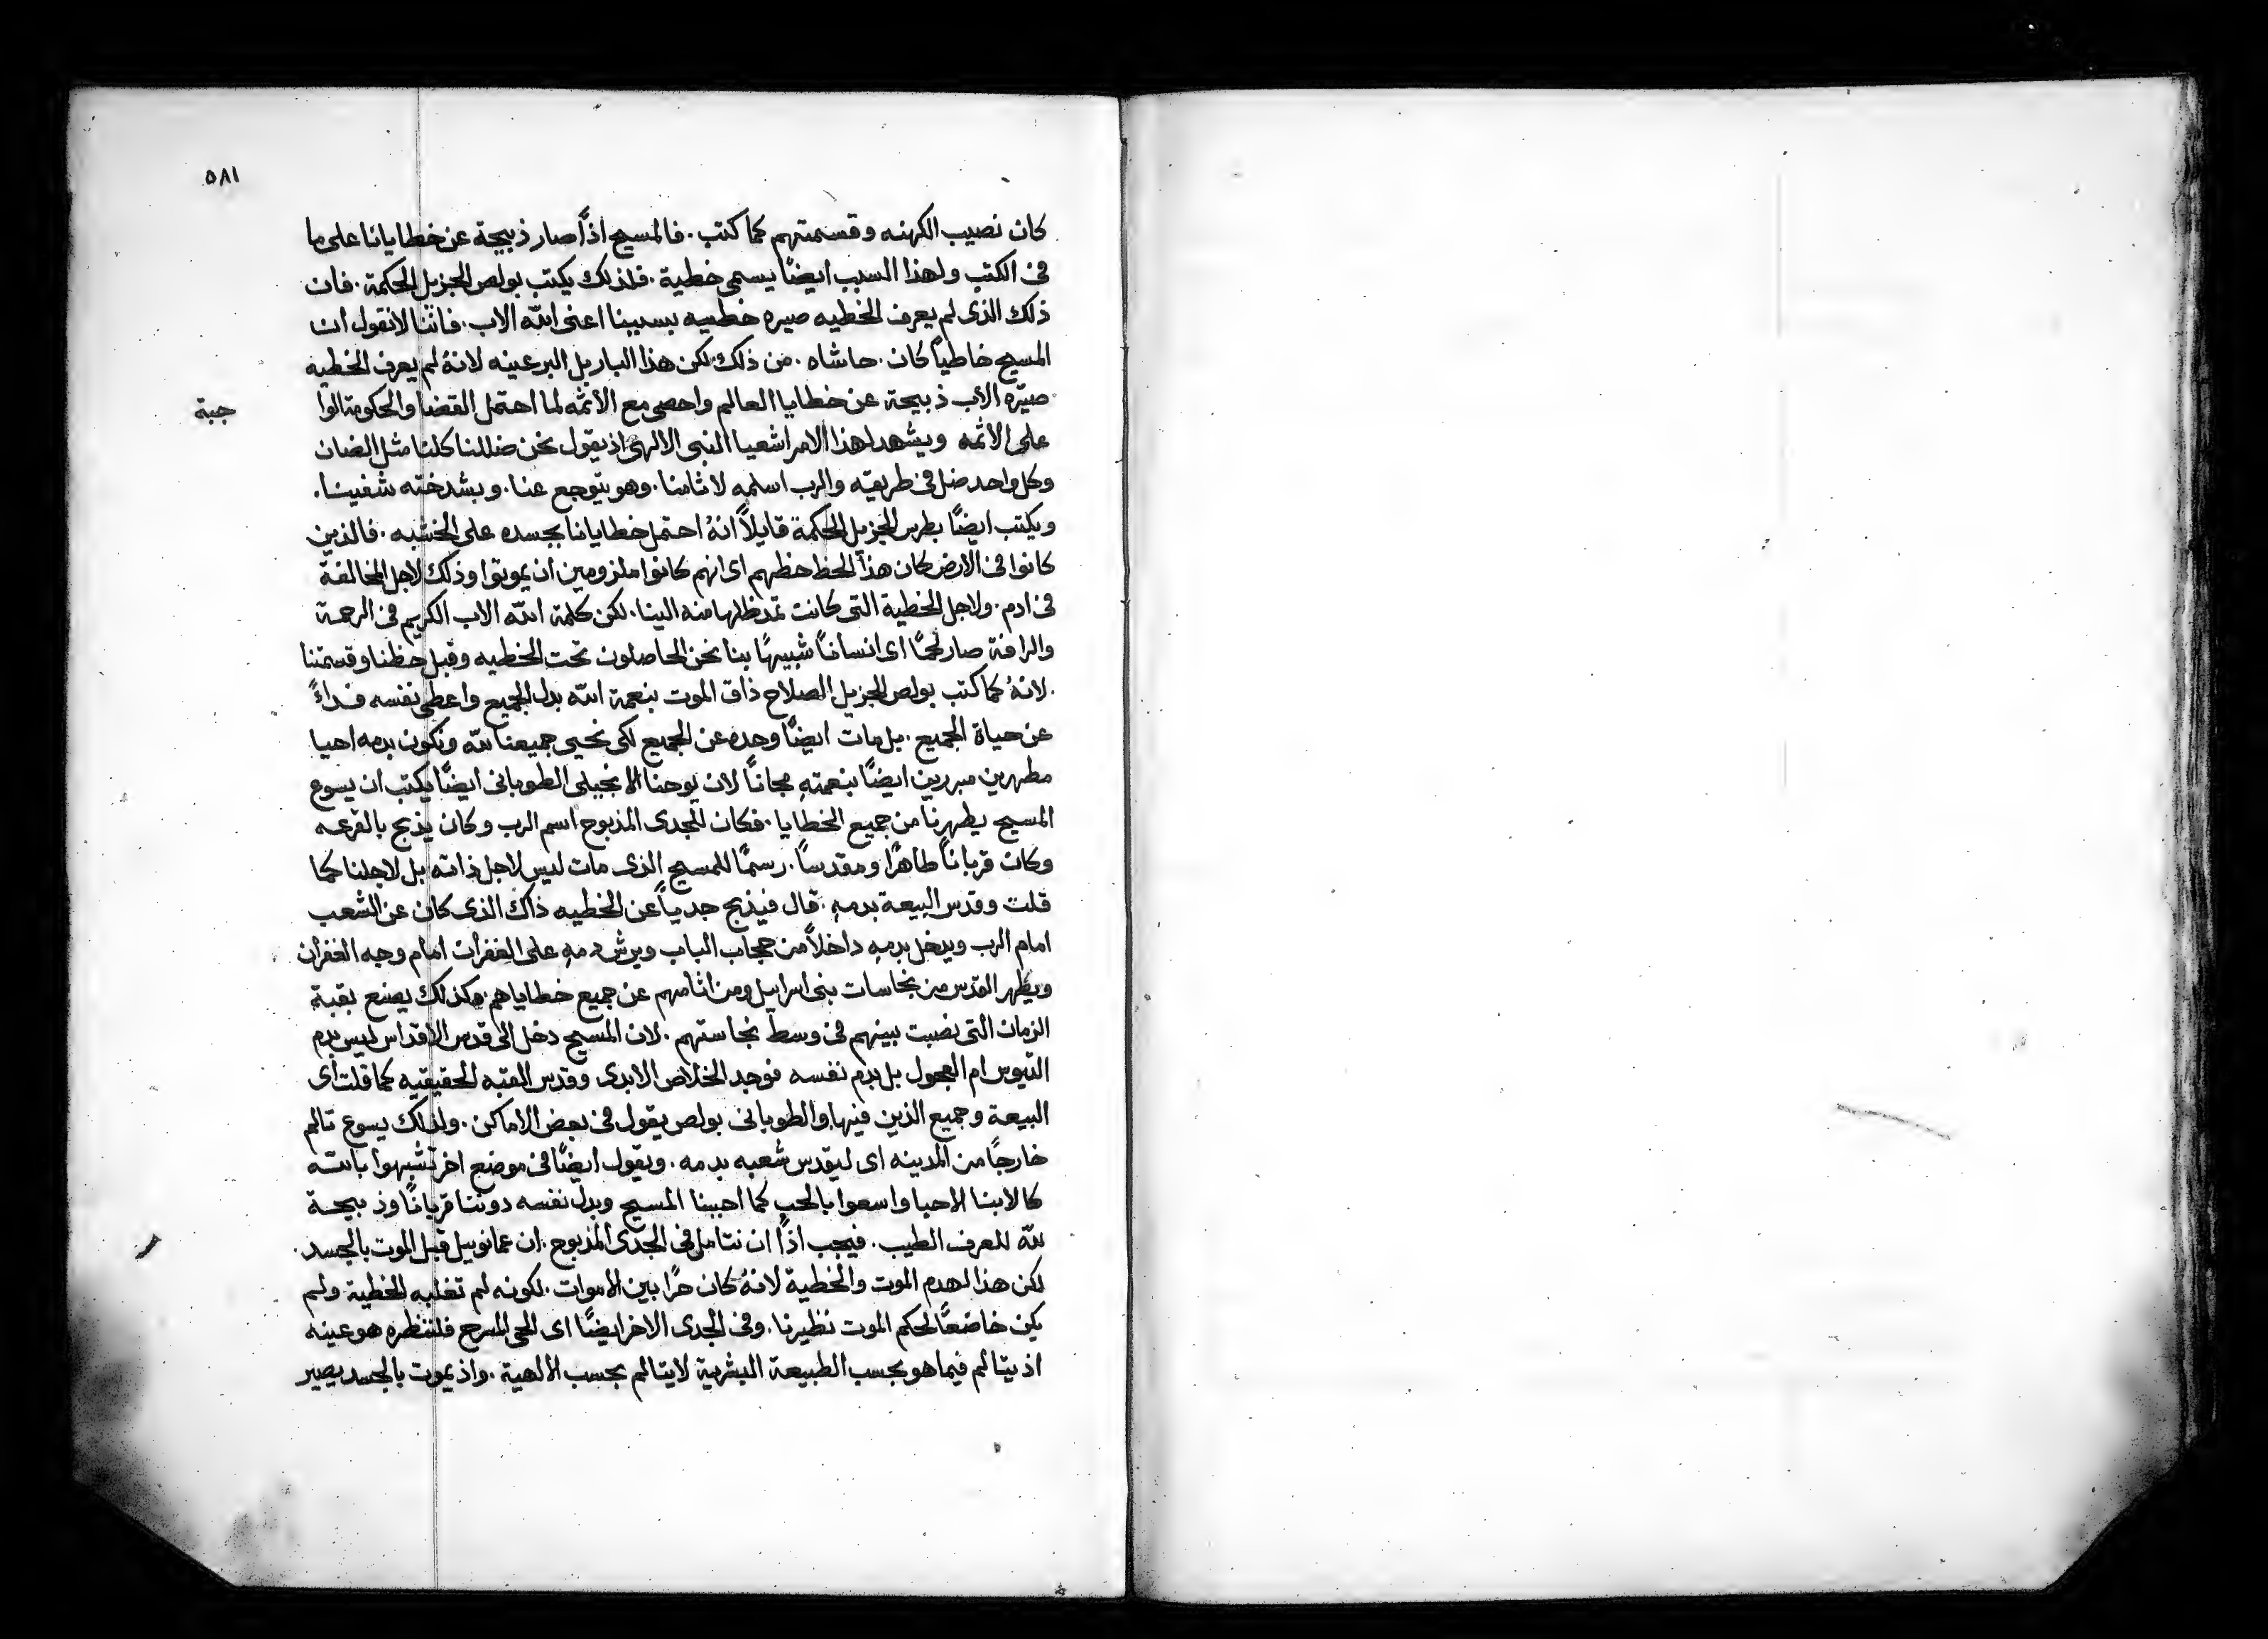 ٥٨١
كان نصيب الكهنه وقسمتهم كما كتب. فالمسيح اذًا صار ذبيحة عن خطايانا على ما
فى الكتب ولهذا السبب ايضًا يسمى خطية. فلذلك يكتب بولص الجزيل الحكمة. فان
ذلك الذى لم يعرف الخطيه صيره خطيه بسببنا اعنى الله الاب. فاننا لا نقول ان
المسيح خاطيًا كان. حاشاه. من ذلك لكن هذا البار بل البر عينه لانهُ لم يعرف الخطيه
صيّره الأب ذبيحة عن خطايا العالم واحصى مع الأثمه لما احتمل القضا والحكومة الوا
جبة
على الأثمه ويشهد لهذا الامر اشعيا النبى الالهى اذ يقول نحن ضللنا كلنا مثل الضان
وكل واحد ضل فى طريقه والرب اسلمه لاثامنا. وهو يتوجع عنا. وبشدخته شفينا.
ويكتب ايضًا بطرس الجزيل الحكمة قايلاً انهُ احتمل خطايانا بجسده على الخشبه. فالذين
كانوا فى الارض كان هذا الحظ حظهم اى انهم كانوا ملزومين ان يموتوا وذلك لاجل المخالفة
فى ادم. ولاجل الخطية التى كانت تمد ظلها منه الينا. لكن كلمة الله الاب الكريم فى الرحمة
والرافة صار لحمًا اى انسانًا شبيهًا بنا نحن الحاصلون تحت الخطيه وقبل حظنا وقسمتنا
. لانهُ كما كتب بولص الجزيل الصلاح ذاق الموت بنعمة الله بدل الجميع واعطى نفسه فداءً
عن حياة الجميع. بل مات ايضًا وحده عن الجميع لكى نحيى جميعنا لله ونكون بدمه احيا
مطهرين مبررين ايضًا بنعمتهِ مجانًا لان يوحنا الانجيلى الطوبانى ايضًا يكتب ان يسوع
المسيح يطهرنا من جميع الخطايا. فكان للجدى المذبوح اسم الرب وكان يذبح بالقرعه
وكان قربانًا طاهرًا ومقدسًا. رسمًا للمسيح الذى مات ليس لاجل ذاته بل لاجلنا كما
قلت وقدس البيعة بدمهِ. قال فيذبح جديًا عن الخطيه ذاك الذى كان عن الشعب
امام الرب ويدخل بدمهِ داخلاً من حجاب الباب ويرش دمهِ على الغفران امام وجه الغفران
ويطهر القدس من نجاسات بنى اسراييل ومن اثامهم عن جميع خطاياهم. وكذلك يصنع بقبة
الزمان التى نصبت بينهم فى وسط نجاستهم. لان المسيح دخل الى قدس الاقداس ليس بدم
التيوس ام العجول بل بدم نفسه فوجد الخلاص الابدى وقدس القبه الحقيقيه كما قلت اى
البيعة وجميع الذين فيها والطوبانى بولص يقول فى بعض الاماكن. ولذلك يسوع تالم
خارجًا من المدينه اى ليقدس شعبه بدمه. ويقول ايضًا فى موضع اخر تشبهوا بالله
كالابنا الاحبا واسعوا بالحب كما احبنا المسيح وبدل نفسه دوننا قربانًا وذبيحة
لله للعرف الطيب. فيجب اذًا ان نتامل فى الجدى المذبوح. ان عمانوييل قبل الموت بالجسد.
لكن هذا لهدم الموت والخطية لانهُ كان حرًا بين الاموات. لكونه لم تغلبه الخطية ولم
يكن خاضعًا لحكم الموت نظيرنا. وفى الجدى الاخر ايضًا اى الحى المسرح فلننظره هو عينه
اذ يتالم فيما هو بحسب الطبيعة البشرية لا يتالم بحسب الالهية. واذ يموت بالجسد يصير